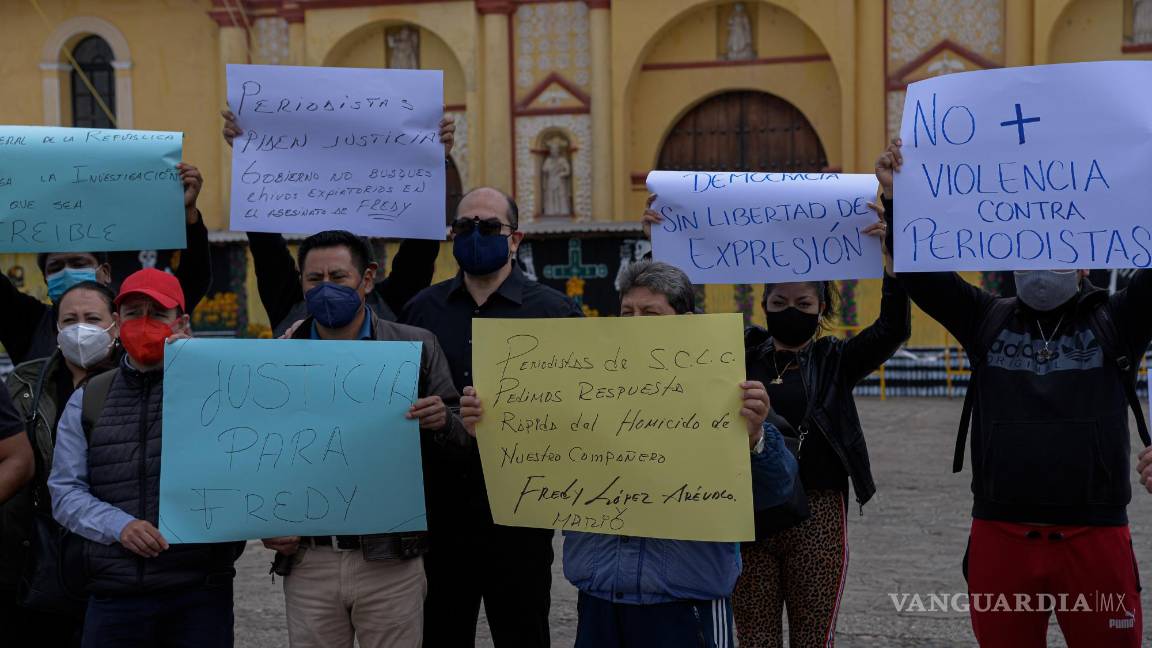 ERAL DE LA REPUBLICA
SA LA INVESTIGACIÓN
QUE SEA
CREIBLE
PERIODISTAS
PIDEN JUSTICIA
GOBIERNO NO BUSQUES
CHIVOS EXPIATORIOS EN
EL ASESINATO DE FREDY
DEMOCRACIA
SIN LIBERTAD DE
EXPRESIÓN
NO +
VIOLENCIA
CONTRA
PERIODISTAS
JUSTICIA
PARA
FREDY
PERIODISTAS DE S.C.L.C.
PEDIMOS RESPUESTA
RÁPIDA DEL HOMICIDIO DE
NUESTRO COMPAÑERO
FREDY LÓPEZ ARÉVALO.
adidas
ORIGINAL
PUMA
VANGUARDIA|MX